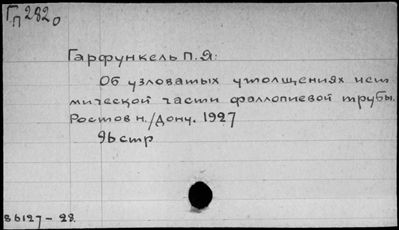 Г/П 2820
Гарфункель П.Я:
Об узловатых утолщениях ист
мической части фаллопиевой трубы.
Ростов н./Дону. 1927
96 стр
86127-28.